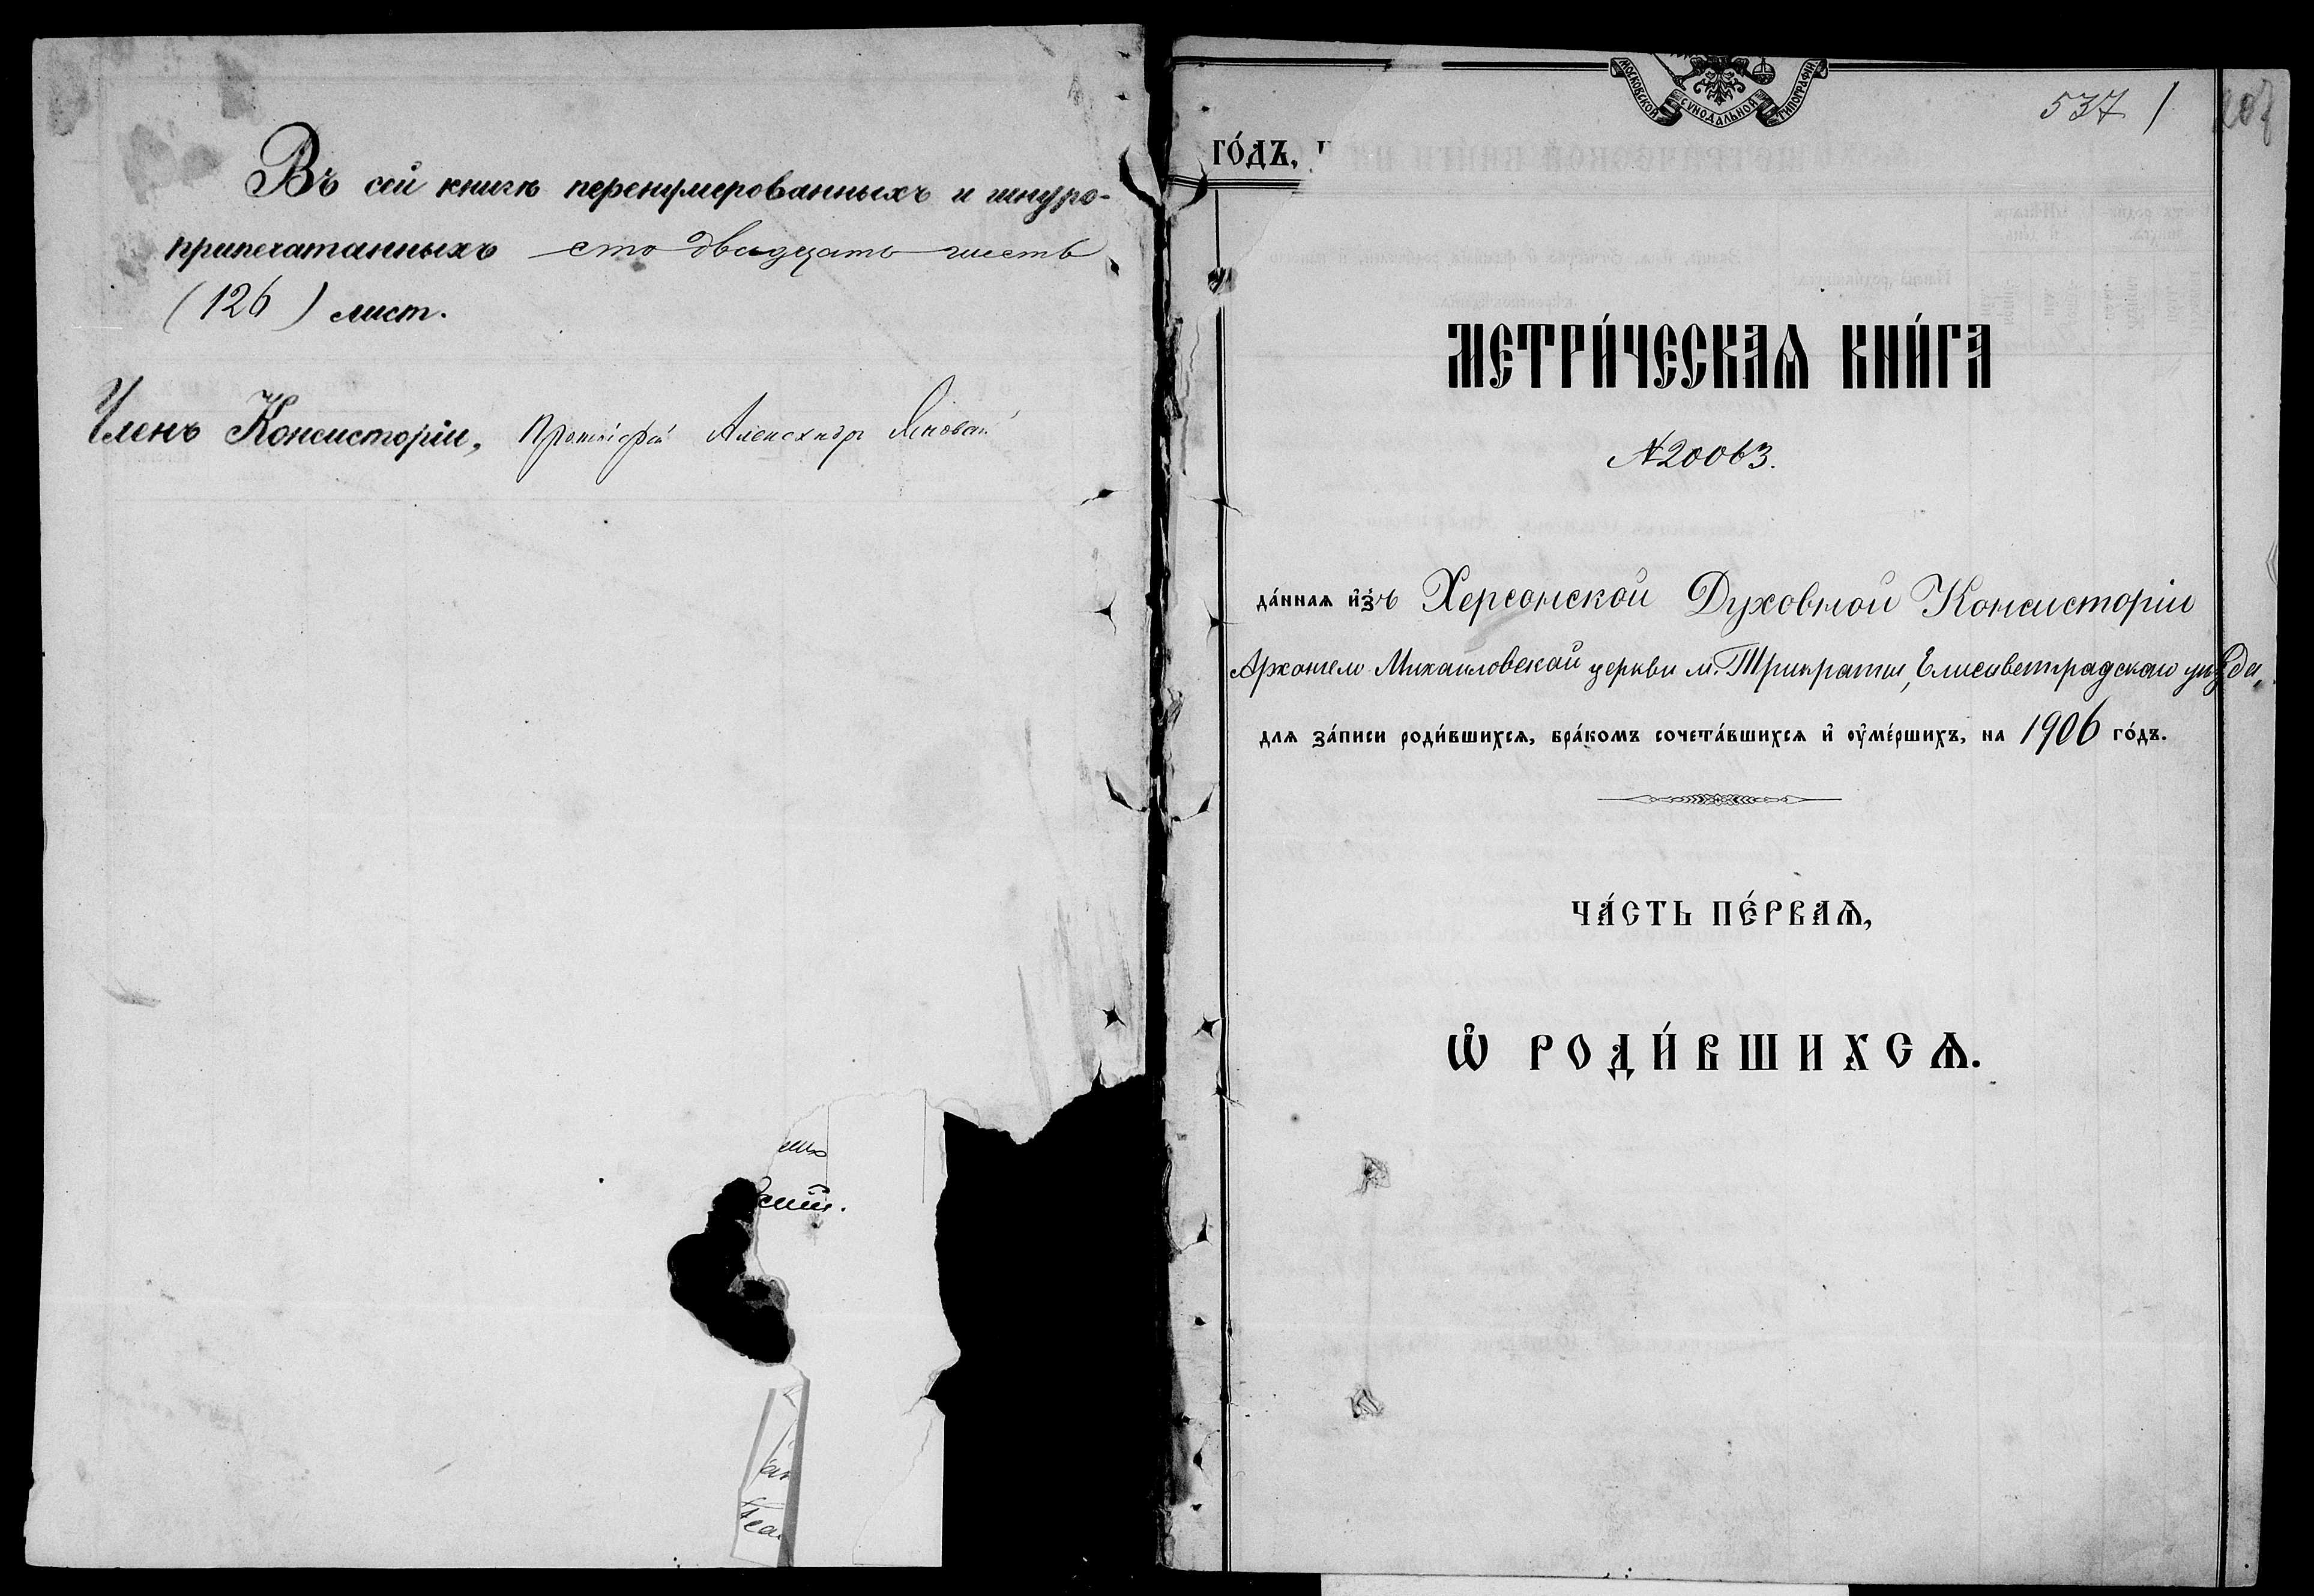 Въ сей книгѣ перенумерованныхъ и шнуро-
припечатанныхъ сто двадцать шесть
(126) лист.
Членъ Консисторіи, Протоіерей Александръ
МОСКОВСКОЙ СУНОДАЛЬНОЙ ТИПОГРАФІИ
537 1
ГО́ДЪ,
МЕТРИ́ЧЕСКАѦ КНИ́ГА
№20063.
да́ннаѧ и҆́зъ Херсонской Духовной Консисторіи
Архангело Михайловской церкви м. Трикратъ, Елисаветградскаго уѣзда,
длѧ за́писи роди́вшихсѧ, бра́комъ сочета́вшихсѧ и҆ ᲂу҆ме́ршихъ, на 1906 го́дъ.
ЧА́СТЬ ПЕ́РВАѦ,
Ѡ҆ РОДИ́ВШИХСѦ.